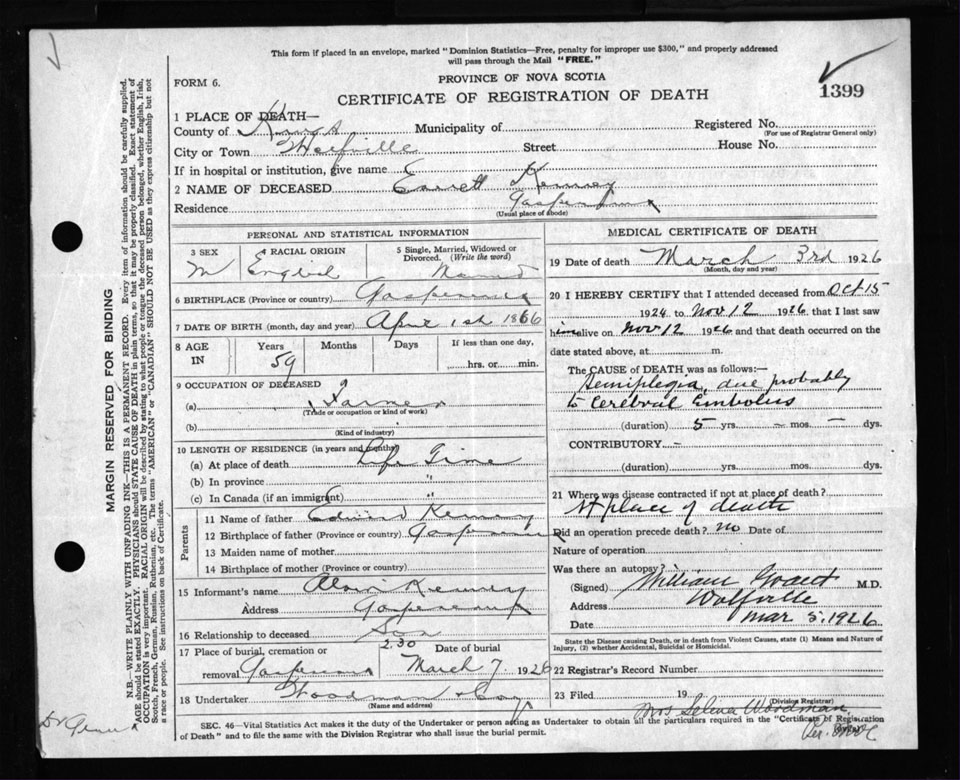 This form if placed in an envelope, marked "Dominion Statistics—Free, penalty for improper use $300," and properly addressed
will pass through the Mail "FREE."
FORM 6.
PROVINCE OF NOVA SCOTIA
CERTIFICATE OF REGISTRATION OF DEATH
1399
1 PLACE OF DEATH—
County of Kings Municipality of Registered No.
(For use of Registrar General only)
City or Town Wolfville Street House No.
If in hospital or institution, give name
2 NAME OF DECEASED Everett Kenney
Residence Gaspereau
(Usual place of abode)
PERSONAL AND STATISTICAL INFORMATION
3 SEX 4 RACIAL ORIGIN 5 Single, Married, Widowed or
Divorced. (Write the word)
M English Married
6 BIRTHPLACE (Province or country) Gaspereau
7 DATE OF BIRTH (month, day and year) April 1st 1866
8 AGE IN Years Months Days If less than one day,
59 hrs. or min.
9 OCCUPATION OF DECEASED
(a) Farmer
(Trade or occupation or kind of work)
(b)
(Kind of industry)
10 LENGTH OF RESIDENCE (in years and months)
(a) At place of death Life Time
(b) In province "
(c) In Canada (if an immigrant) "
Parents
11 Name of father Kenney
12 Birthplace of father (Province or country) Gaspereau
13 Maiden name of mother
14 Birthplace of mother (Province or country)
15 Informant's name Kenney
Address Gaspereau
16 Relationship to deceased Son
17 Place of burial, cremation or 2.30 Date of burial
removal Gaspereau March 7, 1926
18 Undertaker Woodman & Coy
(Name and address)
MEDICAL CERTIFICATE OF DEATH
19 Date of death March 3rd 1926
(Month, day and year)
20 I HEREBY CERTIFY that I attended deceased from Oct 15
1924 to Nov 12 1926 that I last saw
him alive on Nov 12 1926 and that death occurred on the
date stated above, at m.
The CAUSE OF DEATH was as follows:
Hemiplegia, due probably
to Cerebral Embolus
(duration) 5 yrs. – mos. – dys.
CONTRIBUTORY –
(duration) yrs. mos. dys.
21 Where was disease contracted if not at place of death?
At place of death
Did an operation precede death? no Date of
Nature of operation
Was there an autopsy?
(Signed) William Grant M.D.
Address Wolfville
Date Mar 5, 1926
State the Disease causing Death, or in death from Violent Causes, state (1) Means and Nature of
Injury, (2) whether Accidental, Suicidal or Homicidal.
22 Registrar's Record Number
23 Filed 19
(Division Registrar)
Mrs Selena Woodman
Per.
SEC. 46—Vital Statistics Act makes it the duty of the Undertaker or person acting as Undertaker to obtain all the particulars required in the "Certificate of Registration
of Death" and to file the same with the Division Registrar who shall issue the burial permit.
MARGIN RESERVED FOR BINDING
N.B.—WRITE PLAINLY WITH UNFADING INK—THIS IS A PERMANENT RECORD. Every item of information should be carefully supplied.
AGE should be stated EXACTLY. PHYSICIANS should STATE CAUSE OF DEATH in plain terms, so that it may be properly classified. Exact statement of
OCCUPATION is very important. RACIAL ORIGIN will be described by stating to what people or tongue the deceased person belonged, whether English, Irish,
Scotch, French, German, Russian, Ruthenian, etc. The terms "AMERICAN" or "CANADIAN" SHOULD NOT BE USED as they express citizenship but not
a race or people. See instructions on back of Certificate.